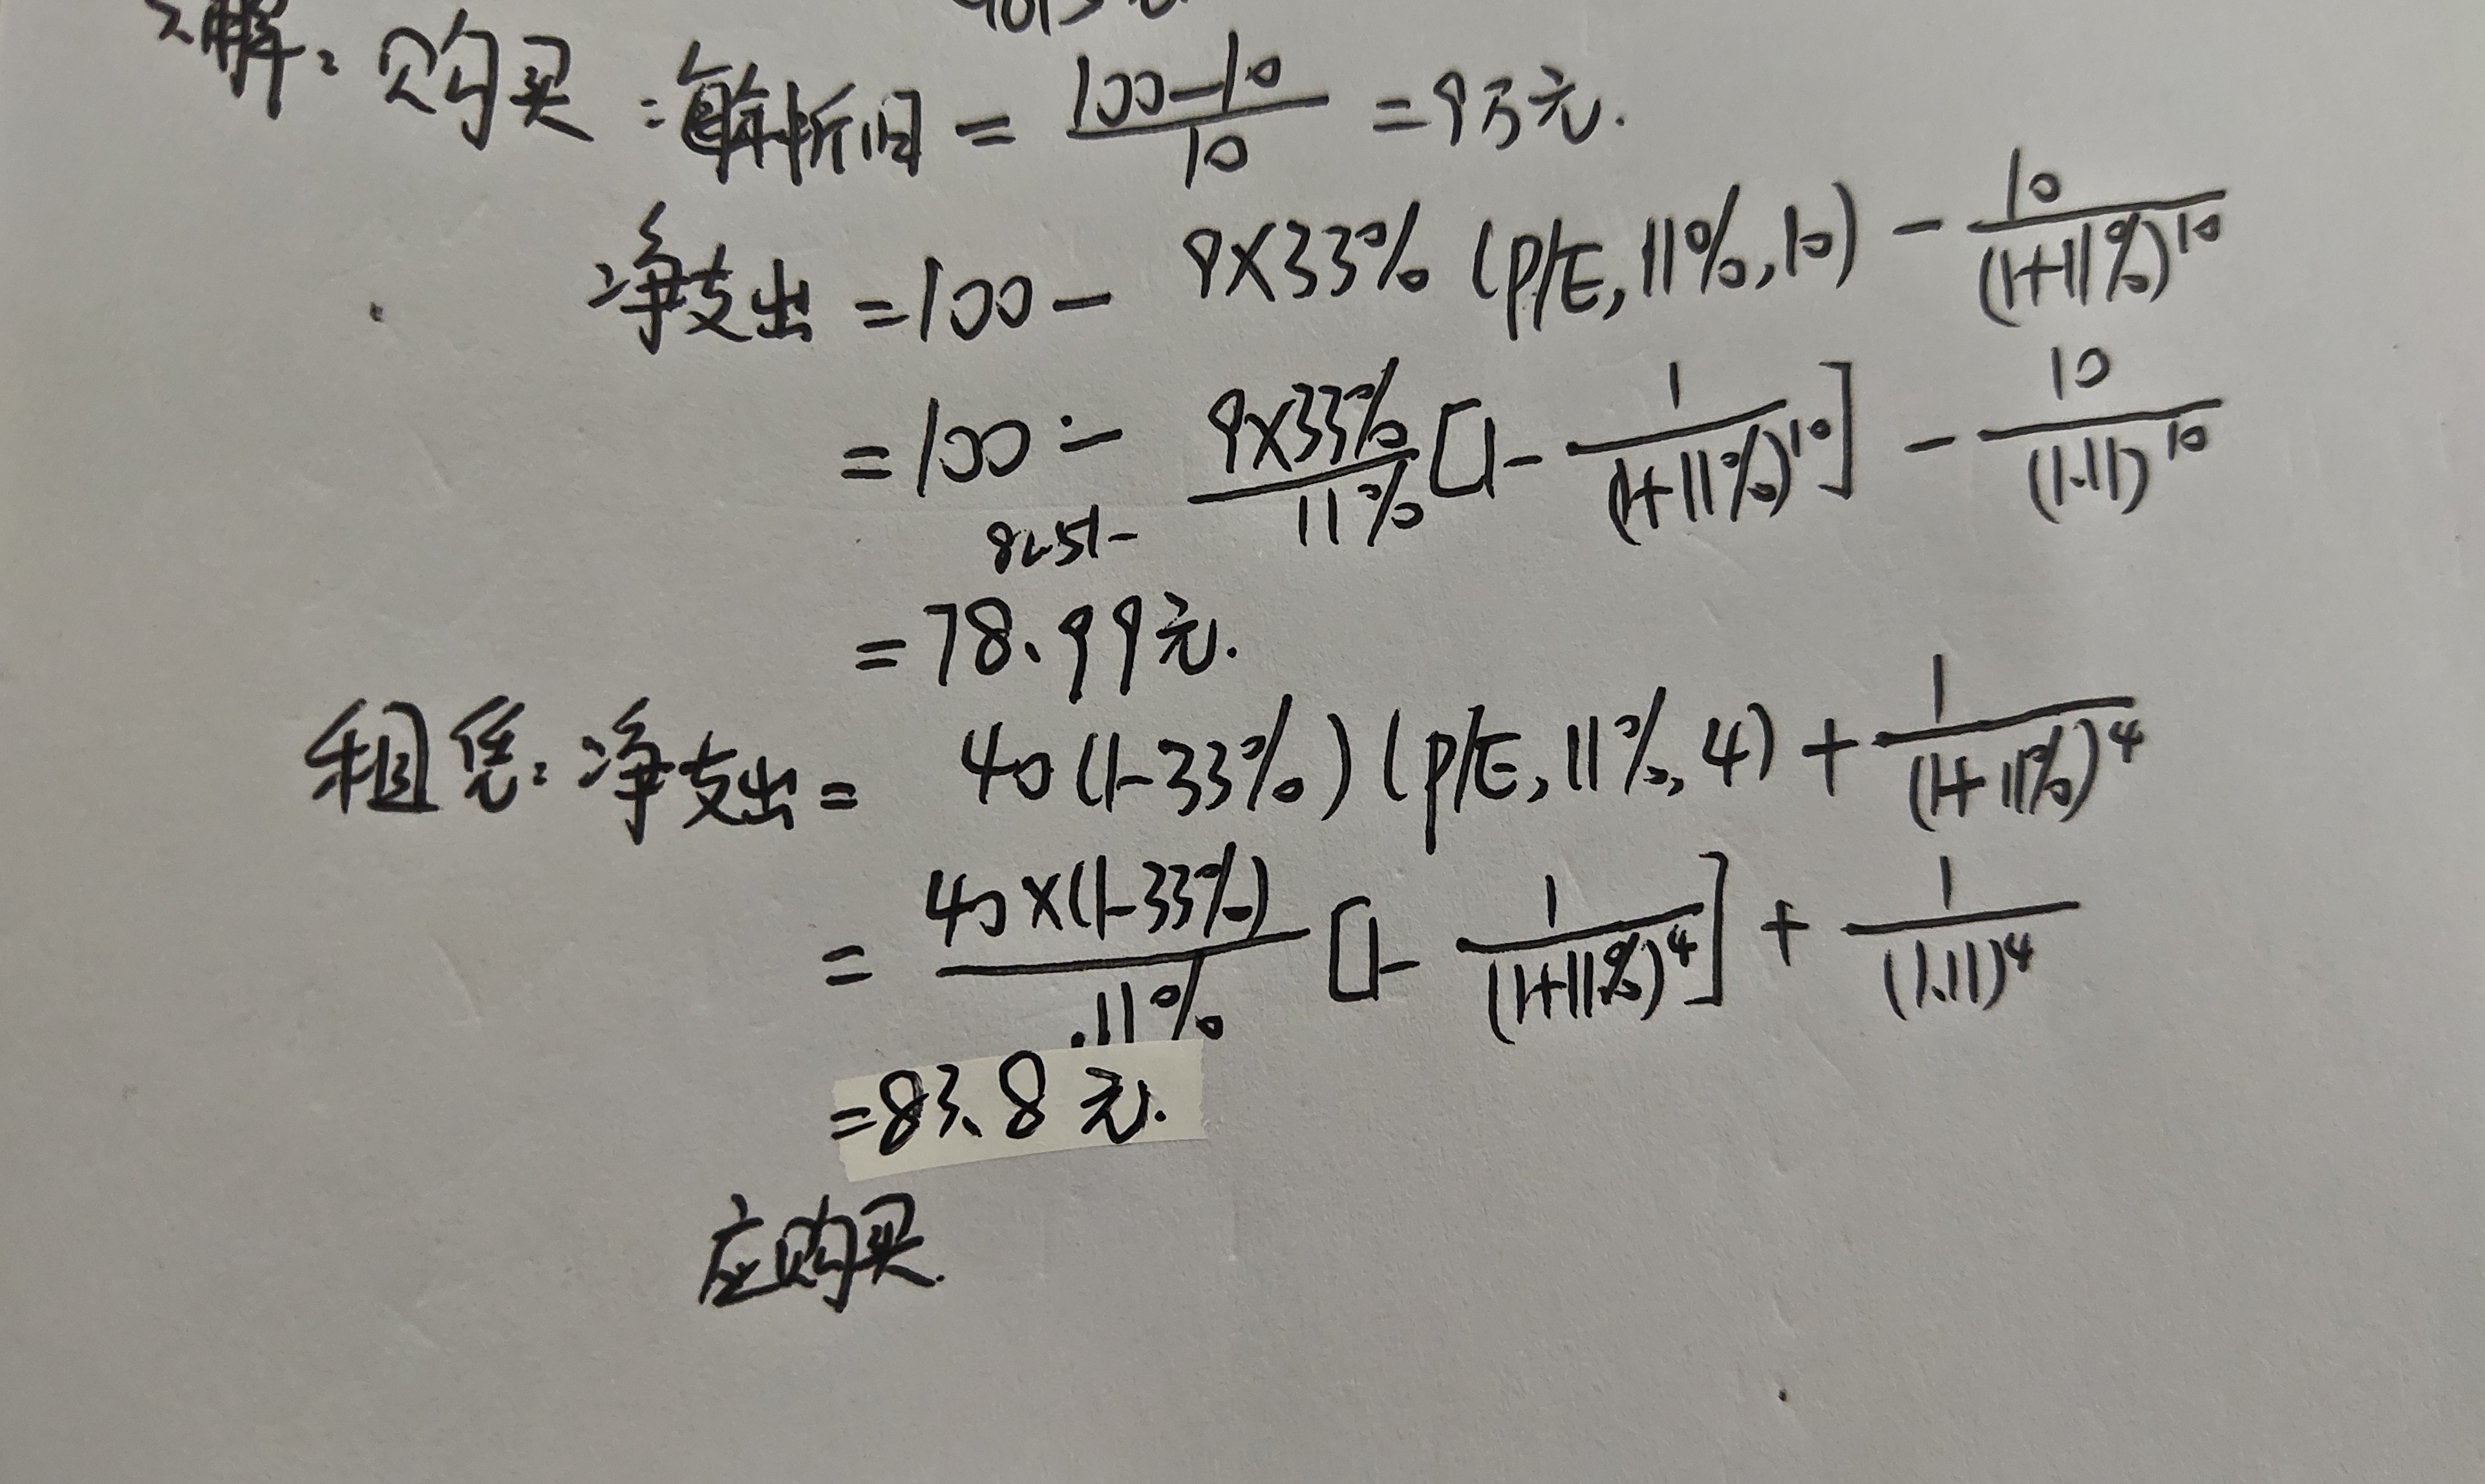 2解：购买：每年折旧 = \frac{100-10}{10} = 9万元.
净支出 = 100 - 9×33% (P/E, 11%, 10) - \frac{10}{(1+11%)^{10}}
= 100 - \frac{9×33%}{11%} [1 - \frac{1}{(1+11%)^{10}}] - \frac{10}{(1.11)^{10}}
= 78.99元.
租凭：净支出 = 40(1-33%)(P/E, 11%, 4) + \frac{1}{(1+11%)^4}
= \frac{40×(1-33%)}{11%} [1 - \frac{1}{(1+11%)^4}] + \frac{1}{(1.11)^4}
= 83.8元.
应购买.